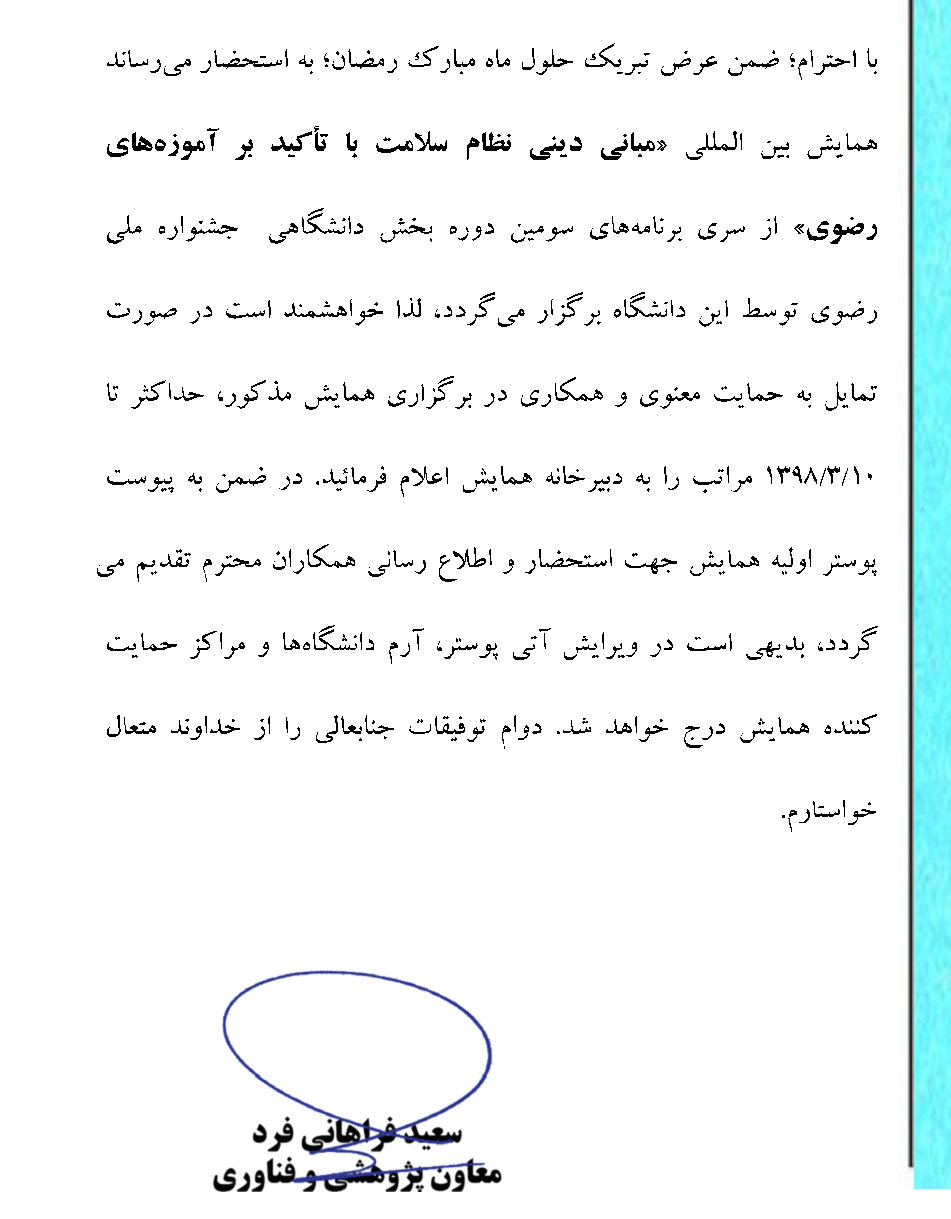 با احترام؛ ضمن عرض تبریک حلول ماه مبارک رمضان؛ به استحضار می‌رساند
همایش بین المللی «مبانی دینی نظام سلامت با تأکید بر آموزه‌های
رضوی» از سری برنامه‌های سومین دوره بخش دانشگاهی جشنواره ملی
رضوی توسط این دانشگاه برگزار می‌گردد، لذا خواهشمند است در صورت
تمایل به حمایت معنوی و همکاری در برگزاری همایش مذکور، حداکثر تا
۱۳۹۸/۳/۱۰ مراتب را به دبیرخانه همایش اعلام فرمائید. در ضمن به پیوست
پوستر اولیه همایش جهت استحضار و اطلاع رسانی همکاران محترم تقدیم می
گردد، بدیهی است در ویرایش آتی پوستر، آرم دانشگاه‌ها و مراکز حمایت
کننده همایش درج خواهد شد. دوام توفیقات جنابعالی را از خداوند متعال
خواستارم.
سعید فراهانی فرد
معاون پژوهشی و فناوری